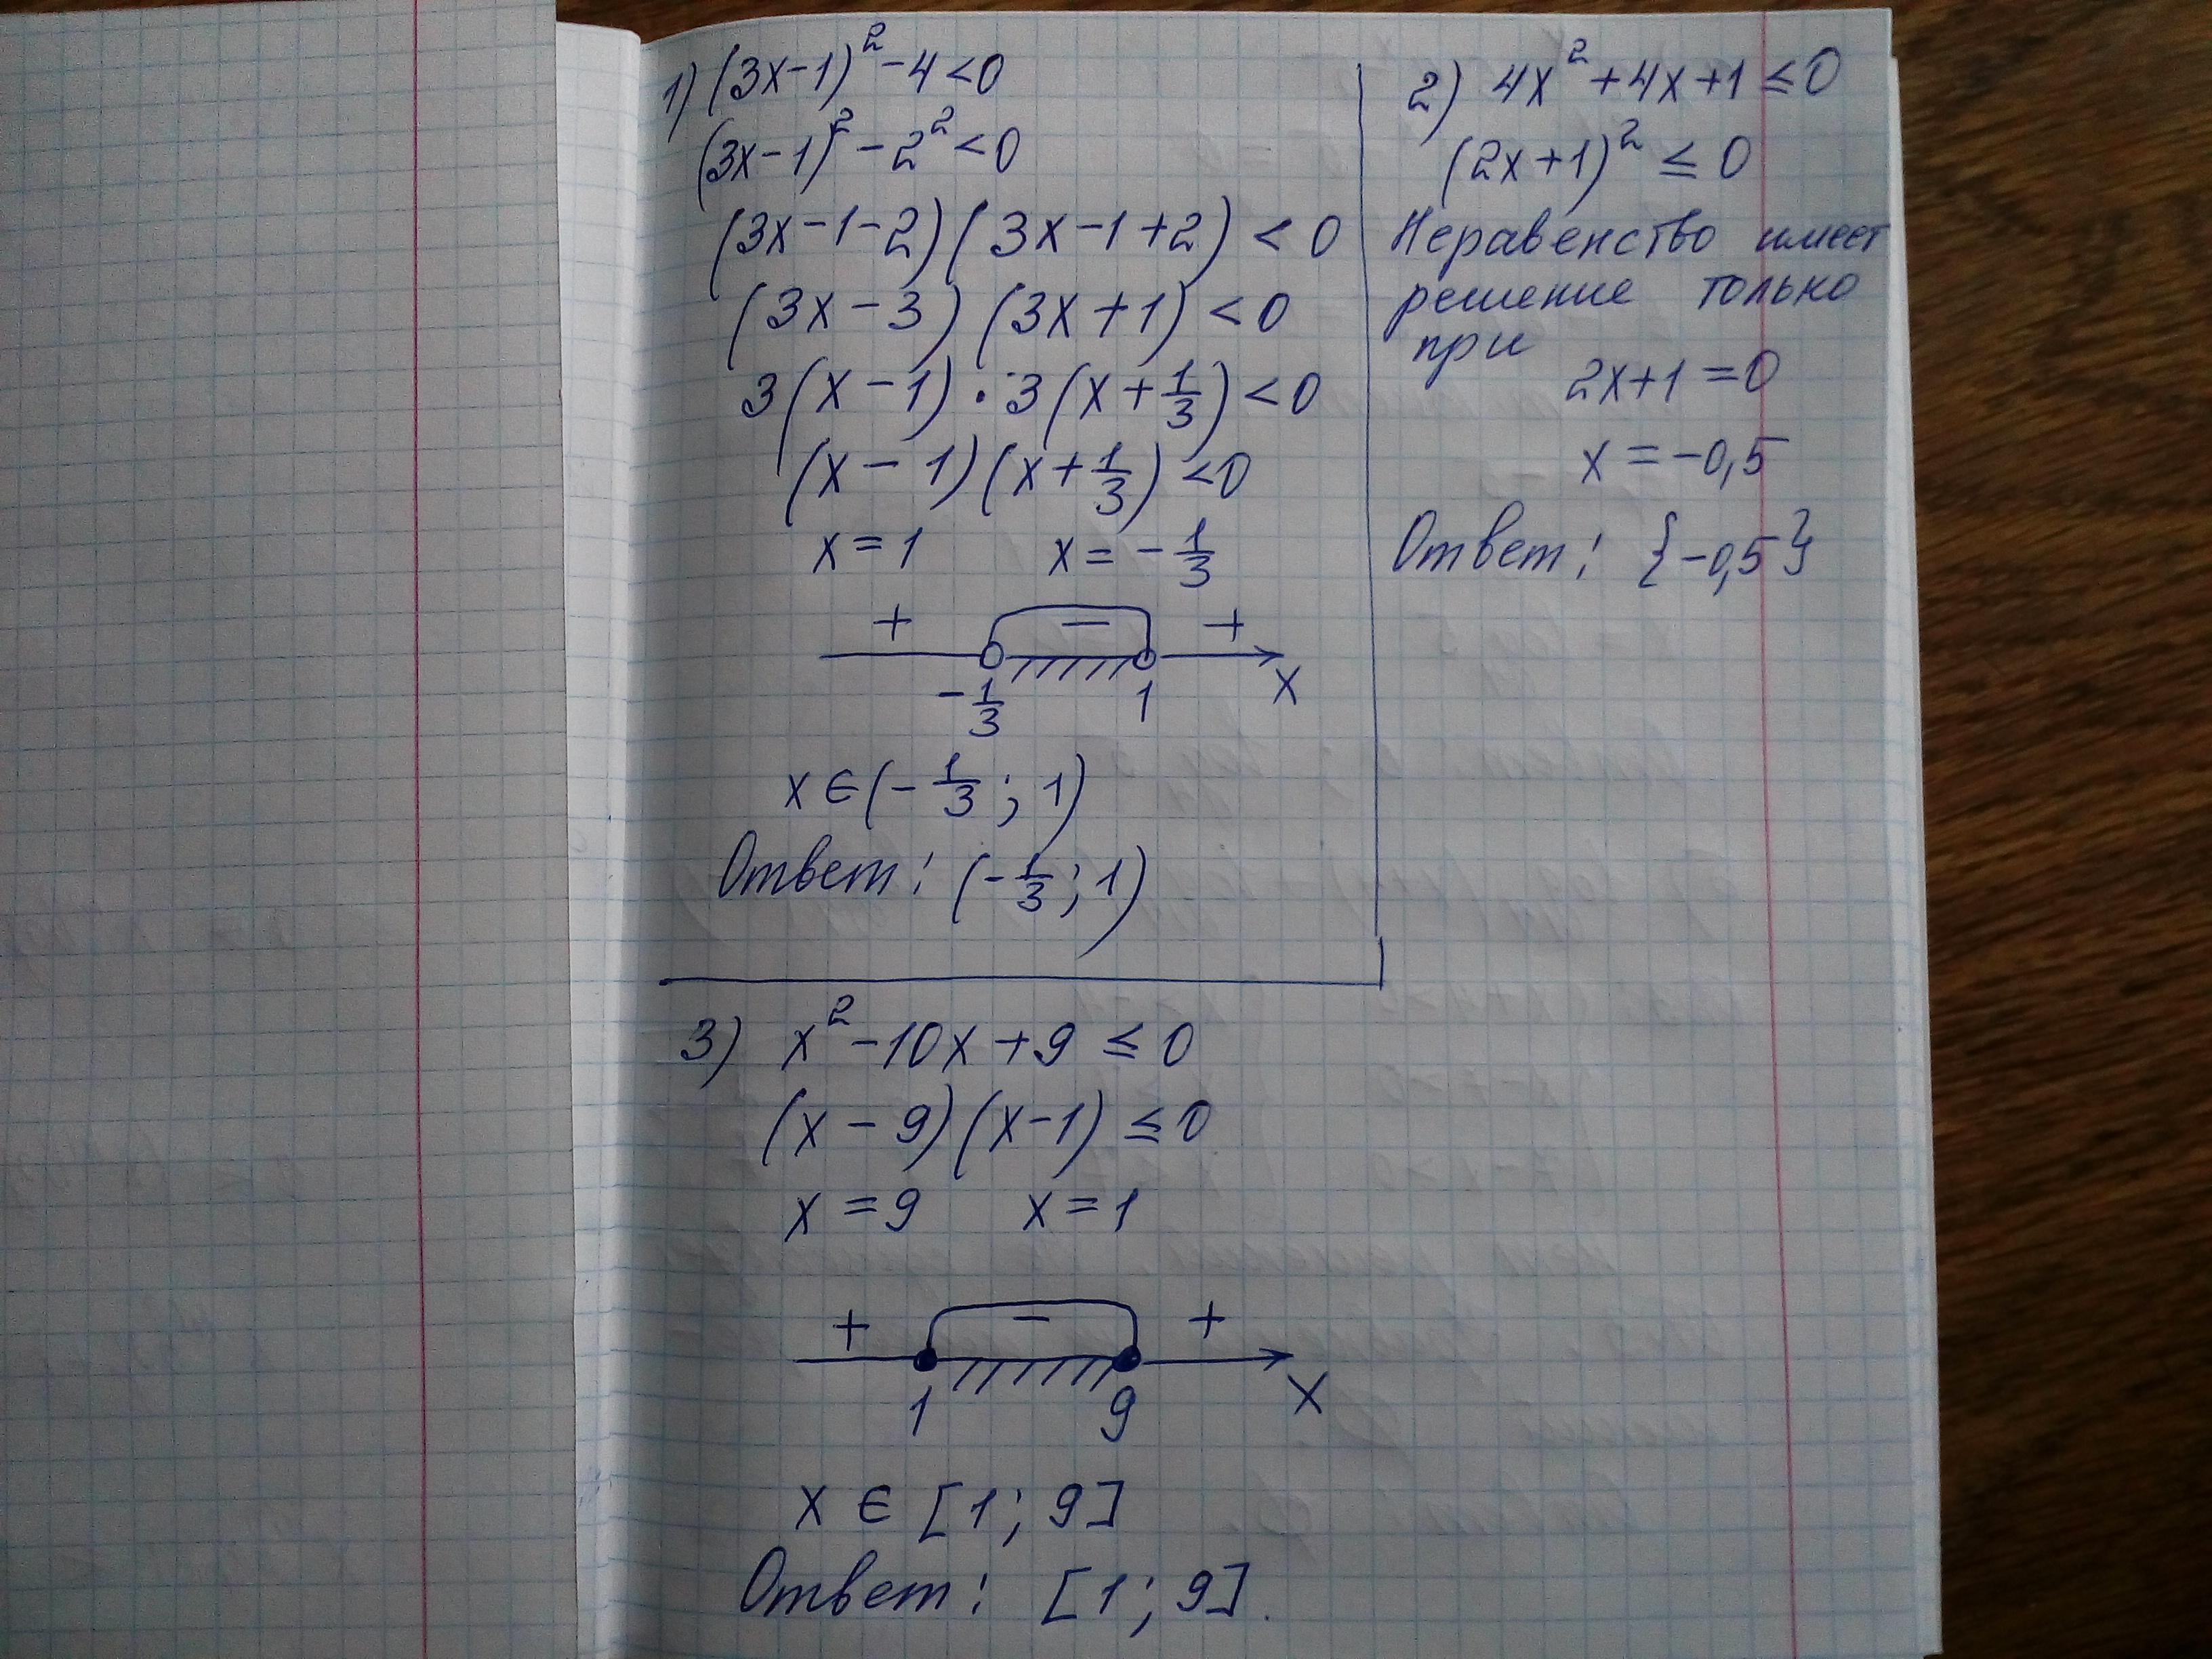 1) (3x-1)² - 4 < 0
(3x-1)² - 2² < 0
(3x-1-2)(3x-1+2) < 0
(3x-3)(3x+1) < 0
3(x-1)·3(x+1/3) < 0
(x-1)(x+1/3) < 0
x = 1 x = -1/3
+ - +
-1/3 1 x
x ∈ (-1/3; 1)
Ответ: (-1/3; 1)
2) 4x² + 4x + 1 ≤ 0
(2x+1)² ≤ 0
Неравенство имеет
решение только
при
2x+1 = 0
x = -0,5
Ответ: {-0,5}
3) x² - 10x + 9 ≤ 0
(x-9)(x-1) ≤ 0
x = 9 x = 1
+ - +
1 9 x
x ∈ [1; 9]
Ответ: [1; 9].